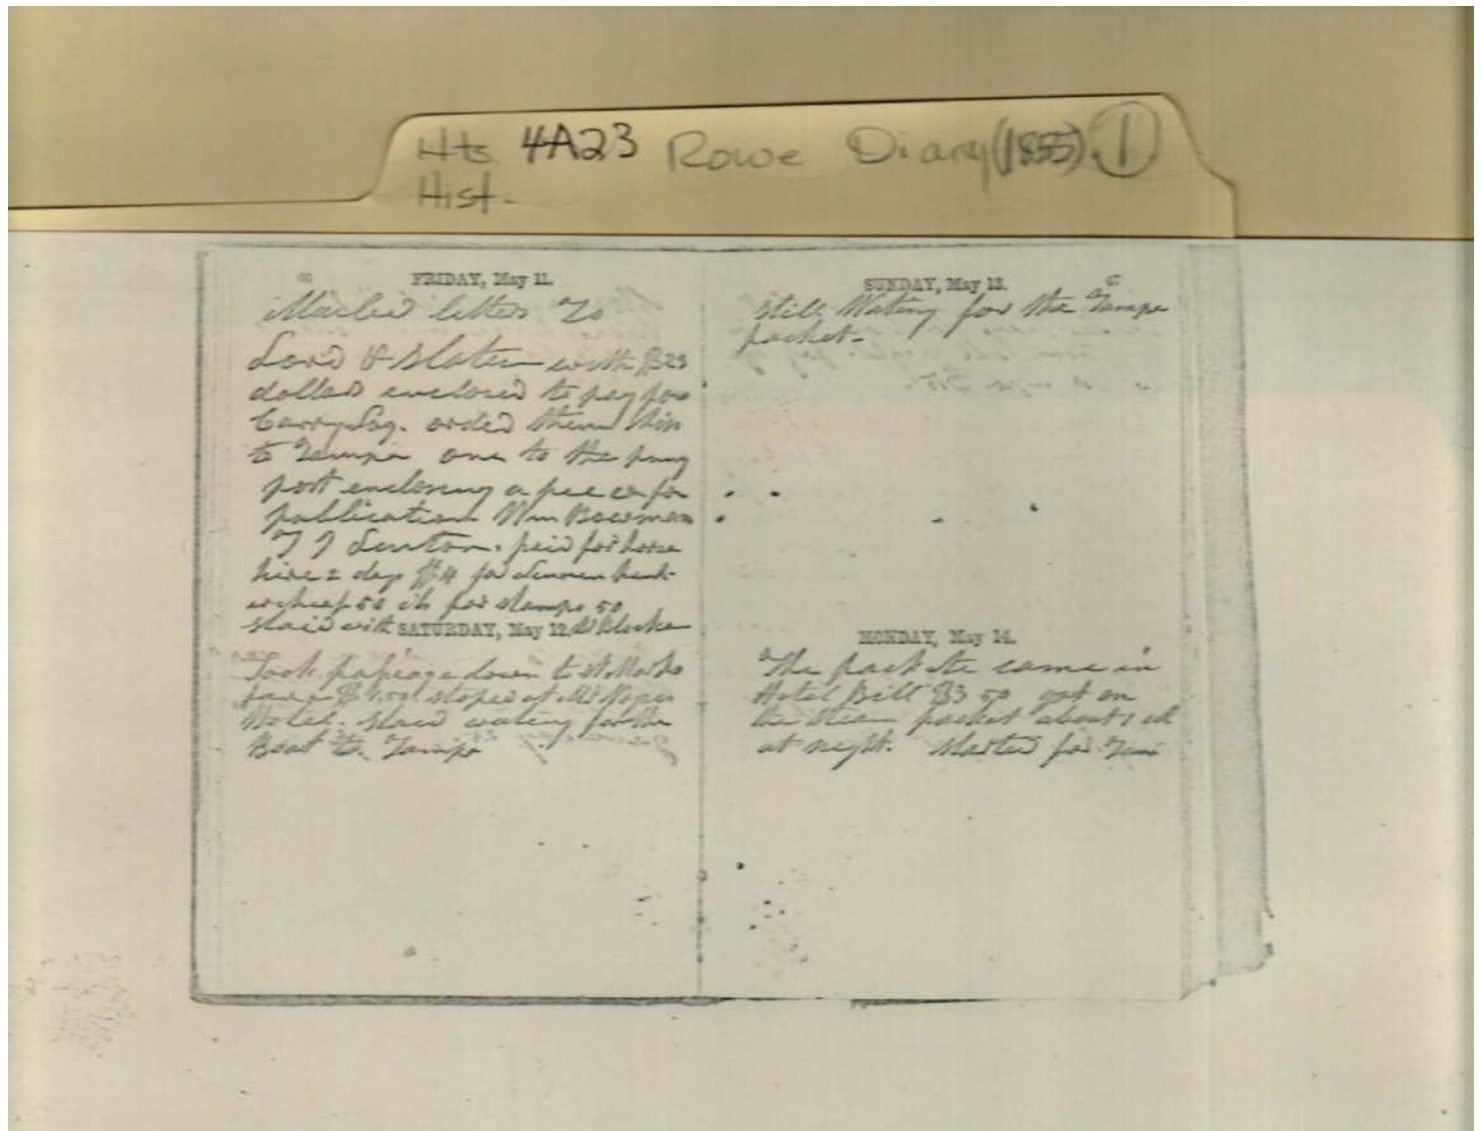 Hts. 4A23 Rowe Diary (1855) 1
Hist.
FRIDAY, May 11.
Mailed letters To
Lord & Slater with $25
dollars enclosed to pay for
orded them
to Tampa one to the
post enclosing a peece for
publication Wm Bowman
T J Linton. paid for horse
hire 2 day $4 for
50 cts for stamps 50
staid with
SATURDAY, May 12.
Took passage down to St Marks
fare $1.50 stoped at
Hotel. Staid wating for the
Boat to Tampa
SUNDAY, May 13.
still Wating for the Tampa
packet.
MONDAY, May 14.
The packete came in
Hotel Bill $3 50 got on
the steam packet about
at night. Started for